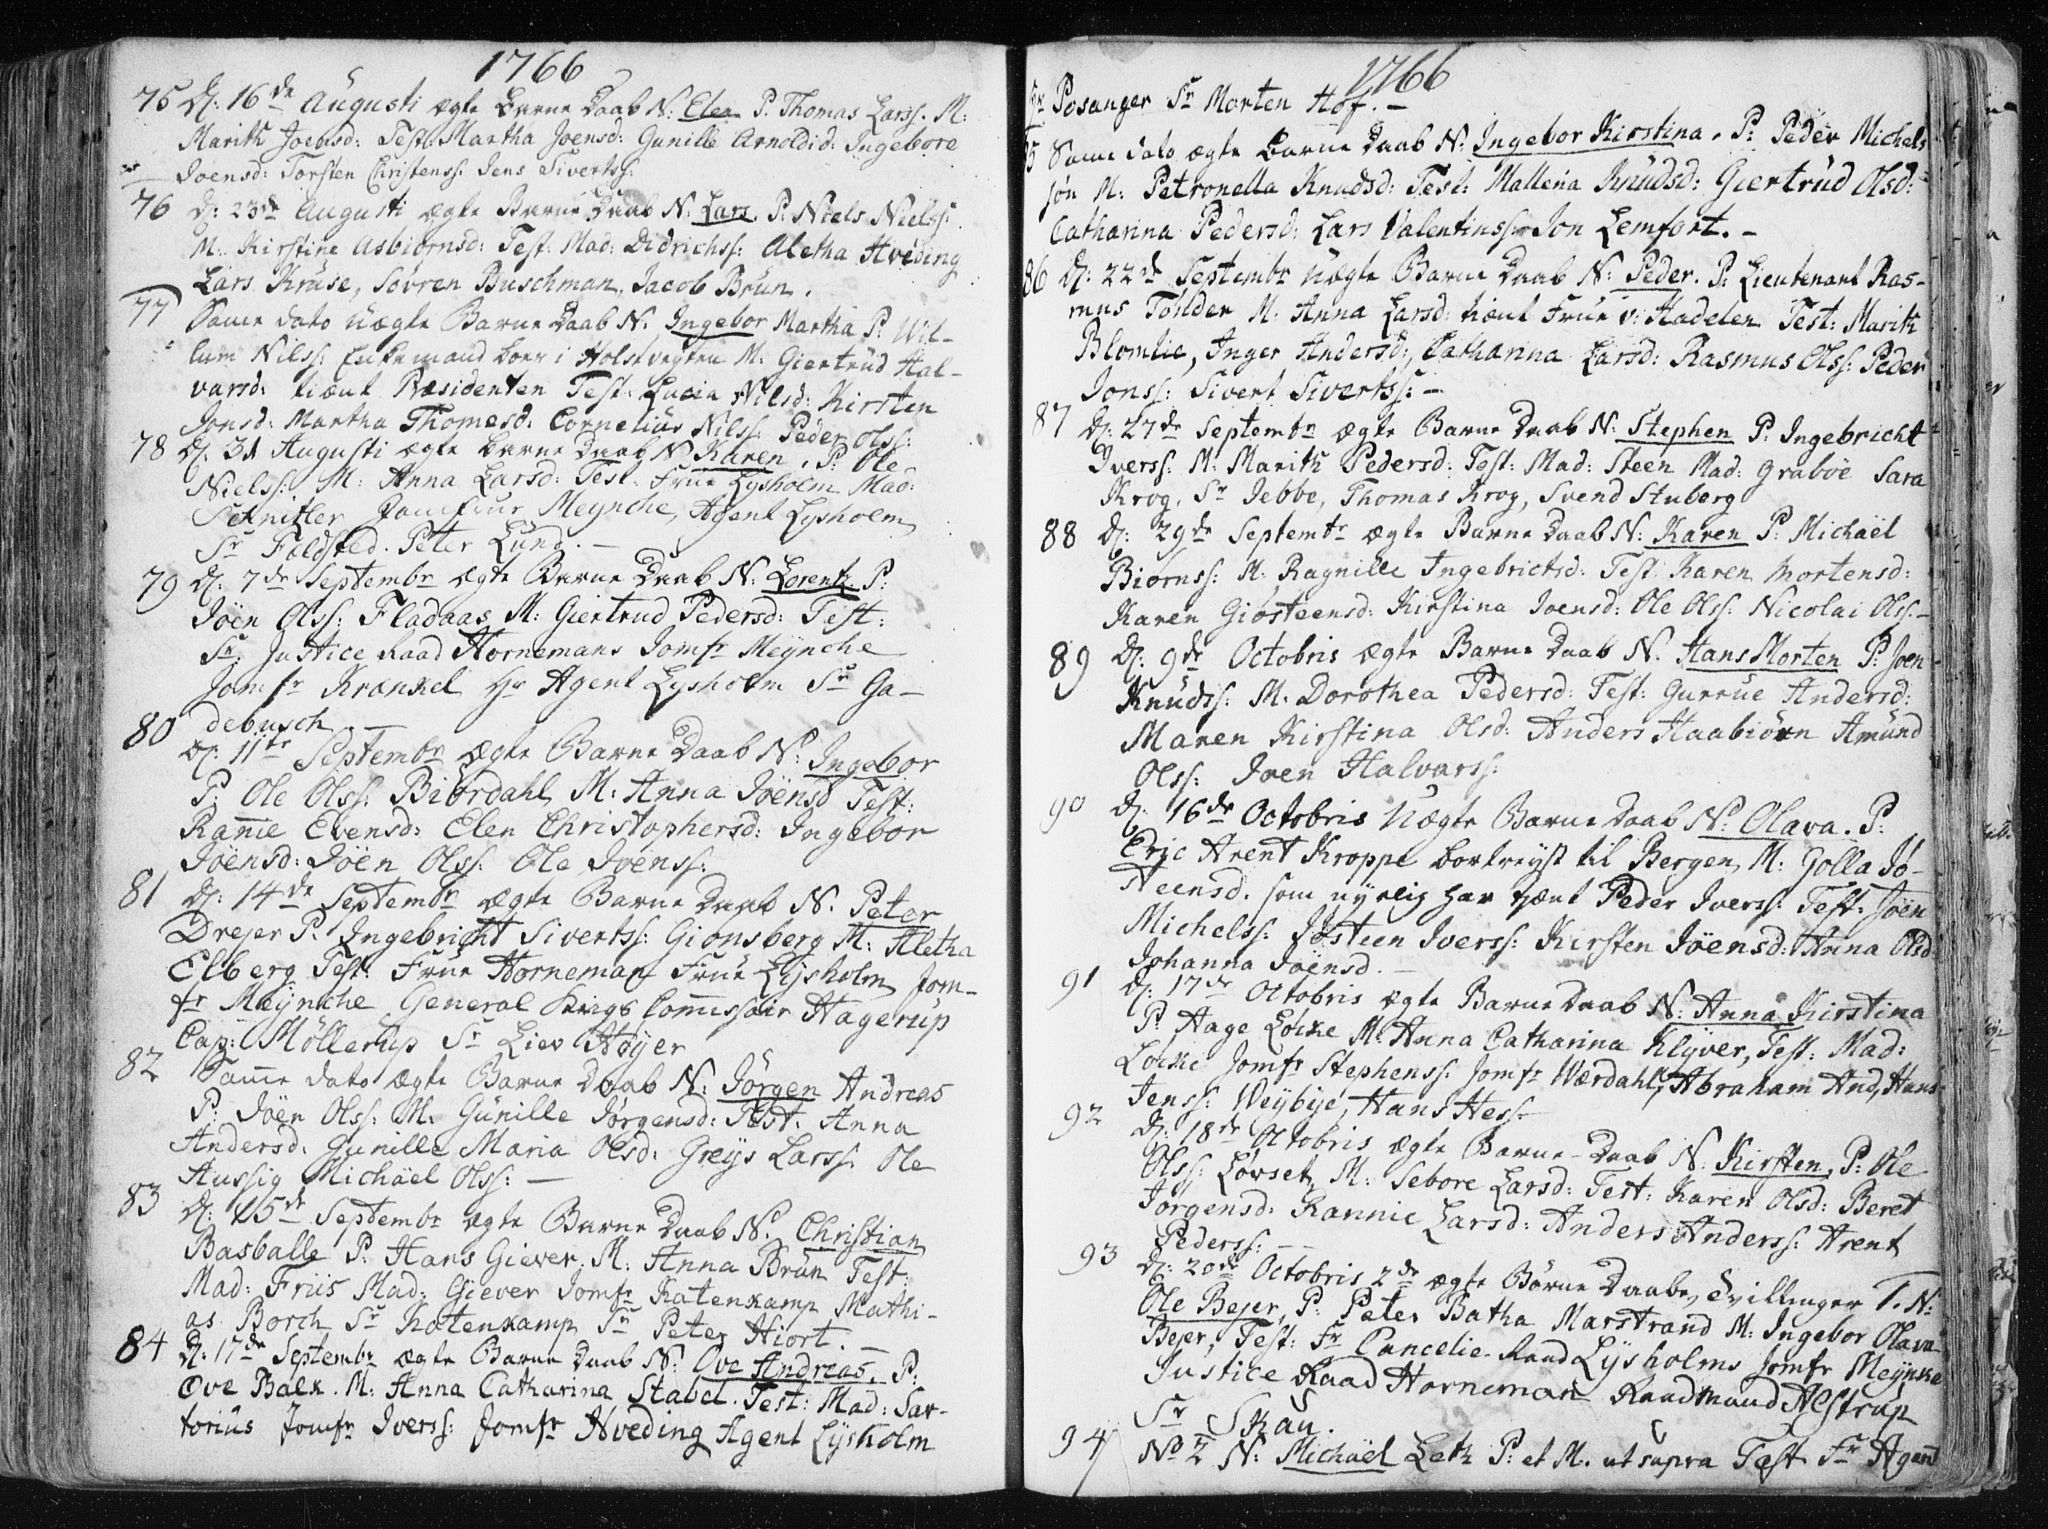 1766
75 D: 16de Augusti ægte Barne Daab N: Elen P. Thomas Larss. M:
Marith Joensd: Test: Martha Joensd: Gunille Arnoldid: Ingebore
Joensd: Torsten Christenss: Jens Sivertss:
76 D: 23de Augusti ægte Barne Daab N: Lars. P: Niels Nielss:
M: Kirstine Asbiörnsd: Test: Mad: Didrichss: Aletha Hveding
Lars Kruse, Sövren Buschman, Jacob Brun.
77 Samme dato uægte Barne Daab N. Ingebor Martha P: Wil-
lum Nilss: Enkemand boer i Holstvegten M: Giertrud Hal-
varsd: tient Præsidenten Test: Lucia Nilsd: Kirsten
Jonsd: Martha Thomesd: Cornelius Nilss: Peder Olss:
78 D: 31 Augusti ægte Barne Daab N Karen. P: Ole
Nielss: M: Anna Larsd: Test: Frue Lysholm Mad:
Schnitler Jomfrur Meynche, Agent Lysholm
Sr Foldsted. Peter Lund. —
79 D: 7de Septembr ægte Barne Daab N: Lorentz P:
Jöen Olss: Fladaas M: Giertrud Pedersd: Test:
Fr. Justice Raad Hornemans Jomfr Meynche
Jomfr Krænkel Hr Agent Lysholm Sr Ga-
debusch —
80 D: 11te Septembr ægte Barne Daab N: Ingebor
P: Ole Olss: Biördahl M: Anna Jöensd Test:
Ranne Evensd: Elen Christophersd: Ingebor
Jöensd: Jöen Olss: Ole Joenss:
81 D: 14de Septembr ægte Barne Daab N. Peter
Drejer P: Ingebricht Sivertss: Gionsberg M: Aletha
Elberg Test: Frue Horneman Frue Lysholm Jom-
fr Meynche General Krigs Commissair Hagerup
Cap: Möllerup Sr Liev Höyer
82 Samme dato ægte Barne Daab N: Jörgen Andreas
P: Jöen Olss: M: Gunille Jörgensd: Test: Anna
Andersd: Gunille Maria Olsd: Greys Larss: Ole
Hussig Michäel Olss: —
83 D: 15de Septembr ægte Barne Daab N. Christian
Basballe P: Hans Giever. M: Anna Brun Test:
Mad: Friis Mad: Giever Jomfr Katenkamp Mathi-
as Borch Sr Katenkamp Sr Peter Hiort. —
84 D: 17de Septembr ægte Barne Daab N: Ove Andreas. P:
Ove Balk. M: Anna Catharina Stabel. Test: Mad: Sar-
torius Jomfr Iverss: Jomfr Hveding Agent Lysholm
1766
Posanger Sr Morten Hof. —
85 Samme dato ægte Barne Daab N: Ingebor Kirstina. P: Peder Michels
sön M: Petronella Knudsd: Test: Mallena Knudsd: Giertrud Olsd:
Catharina Pedersd: Lars Valentinss: Jon Lemfort. —
86 D: 22de Septembr uægte Barne Daab N: Peder. P: Lieutenant Ras-
mus Tonder M: Anna Larsd: tient Frue v: Hadelen Test: Marith
Blomlie, Inger Andersd: Catharina Larsd: Rasmus Olss: Peder
Jonss: Sivert Sivertss: —
87 D: 27de Septembr ægte Barne Daab N: Stephen P: Ingebricht
Iverss: M: Marith Pedersd: Test: Mad: Steen Mad: Graböe Sara
Krog, Sr Jebbe, Thomas Krog, Svend Stuberg
88 D: 29de Septembr ægte Barne Daab N: Karen P: Michaël
Biörnss: M: Ragnille Ingebrictsd: Test: Karen Mortensd:
Karen Giösteensd: Kirstina Joensd: Ole Olss: Nicolai Olss: —
89 D: 9de Octobris ægte Barne Daab N. Hans Morten P: Joen
Knudss: M: Dorothea Pedersd: Test: Gurrue Andersd:
Maren Kirstina Olsd: Anders Haabiörn Amund
Olss: Joen Halvarss:
90 D: 16de Octobris uægte Barne Daab N: Olava. P:
Eric Arent Kroppe bortreyst til Bergen M: Golla Jo-
steensd. som nyelig har tient Peder Iverss: Test: Joen
Michelss: Jösteen Iverss: Kirsten Jöensd: Anna Olsd:
Johanna Jöensd. —
91 D: 17de Octobris ægte Barne Daab N: Anna Kirstina
P: Hage Locke M: Anna Catharina Klyver, Test: Mad:
Locke Jomfr Stephenss: Jomfr Wærdahl, Abraham And, Hans
Jenss: Weybye, Hans Hess.
92 D: 18de Octobris ægte Barne Daab N: Kirsten, P: Ole
Olss: Lövset, M: Sebore Larsd: Test: Karen Olsd: Beret
Jörgensd: Rannie Larsd: Anders Anderss: Arent
Pederss: —
93 D: 20de Octobris 2de ægte Börne Daabe, Tvillinger T. N:
Ole Bejer, P: Peter Batha Marstrand M: Ingebor Olava
Bejer, Test: Fr Cancelie Raad Lysholms Jomfr Meynke
Justice Raad Horneman Raadmand Alstrup
Sr Skau.
94 No 2 N: Michäel Letz P: et M. ut supra Test Fr Agent